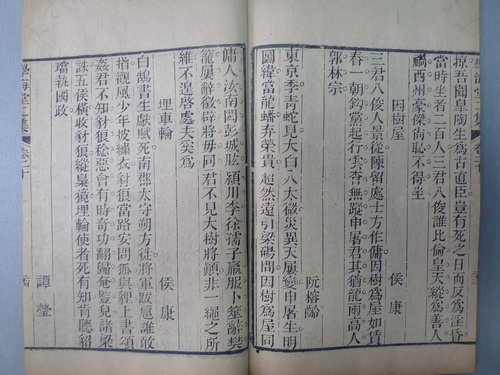 掠吾聞皐陶生爲古直臣豈有死之日而反爲淫昏
當時坐者二百人三君八俊誰比倫皇天縱爲善人
禍西州豪傑尚恥不得坐
因樹屋 侯康
三君八俊人景從陳留處士方作傭因樹爲屋如賃
舂一朝鈎黨起行雲杳無蹤申屠君其猶龍雨高人
郭林宗
阮榕齡
東京季青蛇見大白八太微災異天屢變申屠生明
圖緯當龍蟠弃榮貴超然遠引梁碭間因樹爲屋同
傭人汝南閎彭城肱潁川李徐孺子羸服卜筮辭樊
籠屢辭徵辟將毋同君不見大樹將顛非一繩之所
維不遑啟處夫奚爲
埋車輪 侯康
白鵠書生獻賦死南太守朔方徙將軍跋扈誰敢
指觀風少年披繡衣豺狼當路安問狐與貍上書頌
姦君不知豺狼惡會有時奇功翻歸奄豎兒諸梁
誅五侯橫收豺狼縱梟獍埋輪使者死有知肯聽貂
璫執國政
譚瑩
學海堂二集 卷二十